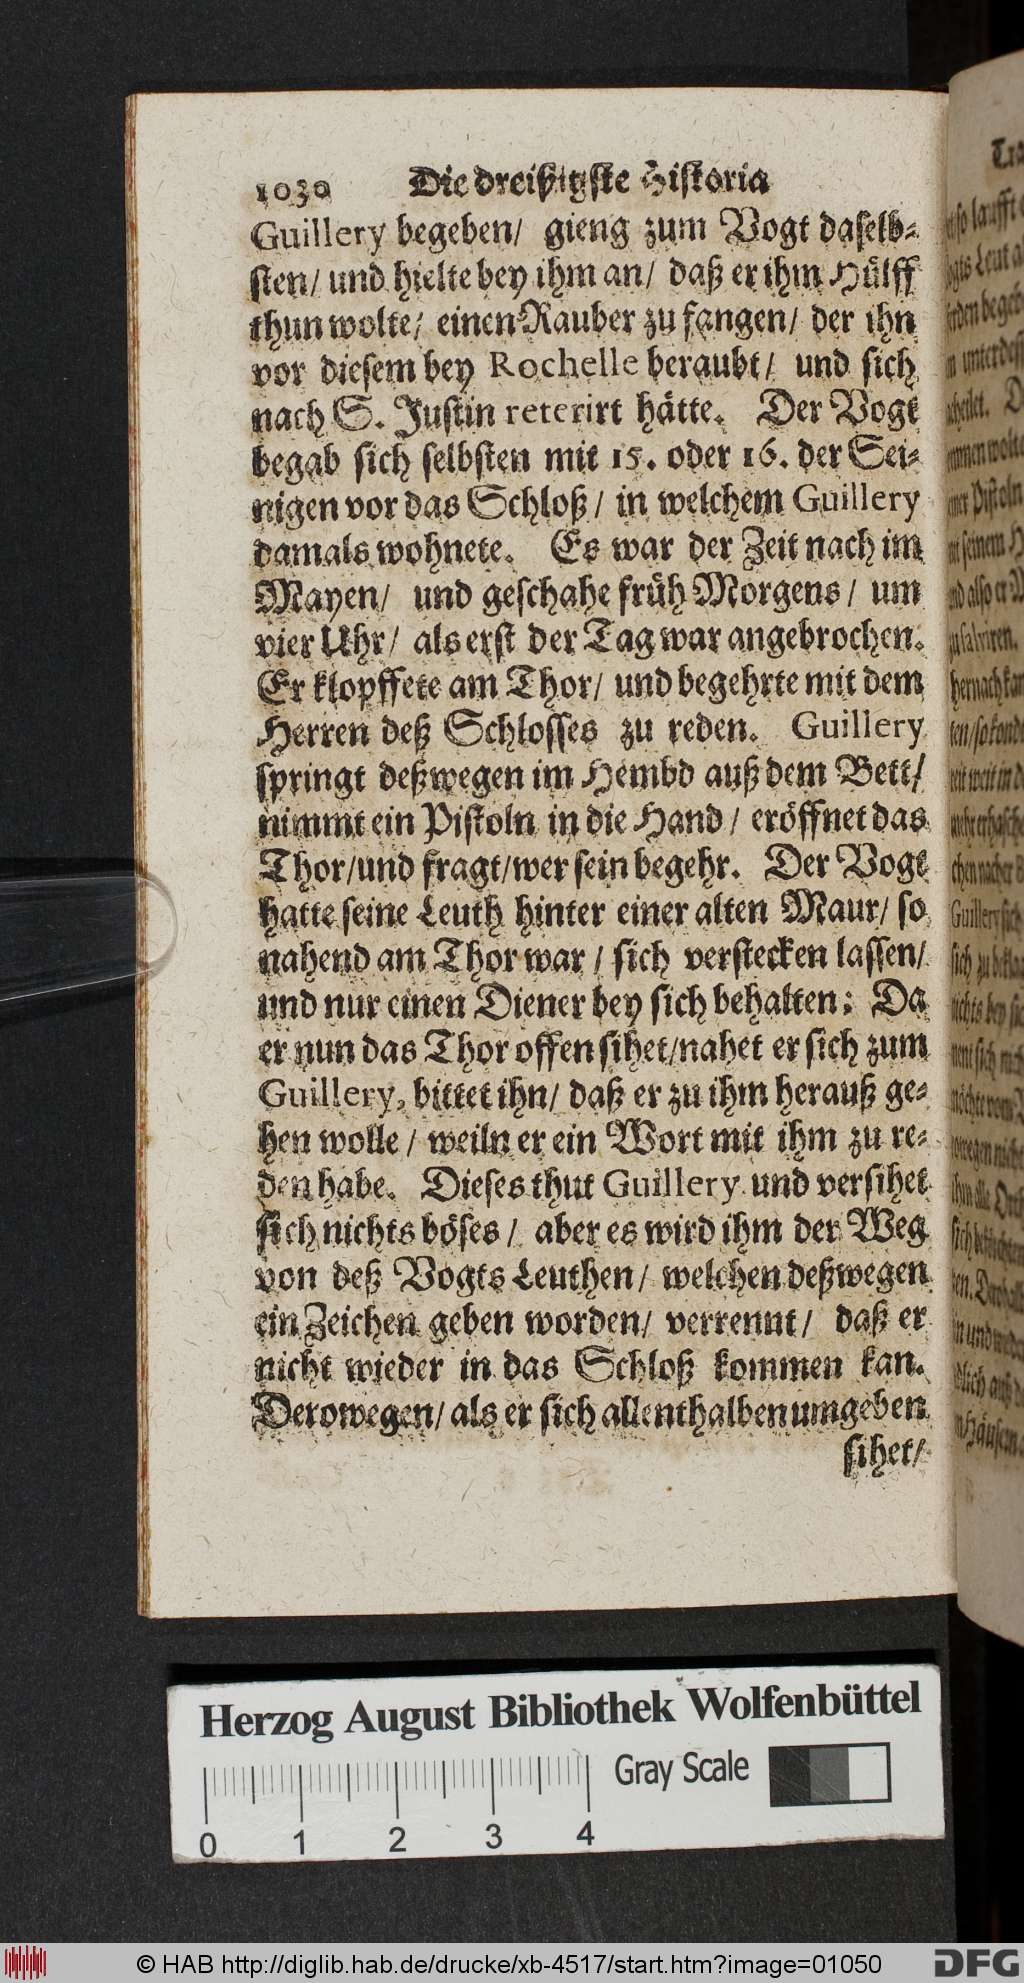 1030 Die dreiſzigſte Hiſtoria
Guillery begeben/ gieng zum Vogt daſelb⸗
ſten/ und hielte bey ihm an/ daß er ihm Hülff
thun wolte/ einen Rauber zu fangen/ der ihn
vor dieſem bey Rochelle beraubt/ und ſich
nach S. Juſtin reterirt hätte. Der Vogt
begab ſich ſelbſten mit 15. oder 16. der Sei⸗
nigen vor das Schloß/ in welchem Guillery
damals wohnete. Es war der Zeit nach im
Mayen/ und geſchahe früh Morgens/ um
vier Uhr/ als erſt der Tag war angebrochen.
Er klopffete am Thor/ und begehrte mit dem
Herren deß Schloſſes zu reden. Guillery
ſpringt deßwegen im Hembd auß dem Bett/
nimmt ein Piſtoln in die Hand/ eröffnet das
Thor/und fragt/wer ſein begehr. Der Vogt
hatte ſeine Leuth hinter einer alten Maur/ ſo
nahend am Thor war/ ſich verſtecken laſſen/
und nur einen Diener bey ſich behalten: Da
er nun das Thor offen ſihet/nahet er ſich zum
Guillery, bittet ihn/ daß er zu ihm herauß ge⸗
hen wolle/ weiln er ein Wort mit ihm zu re⸗
den habe. Dieſes thut Guillery und verſihet
ſich nichts böſes/ aber es wird ihm der Weg
von deß Vogts Leuthen/ welchen deßwegen
ein Zeichen geben worden/ verrennt/ daß er
nicht wieder in das Schloß kommen kan.
Derowegen/ als er ſich allenthalben umgeben
ſihet/
Herzog August Bibliothek Wolfenbüttel
Gray Scale
0 1 2 3 4
© HAB http://diglib.hab.de/drucke/xb-4517/start.htm?image=01050 DFG